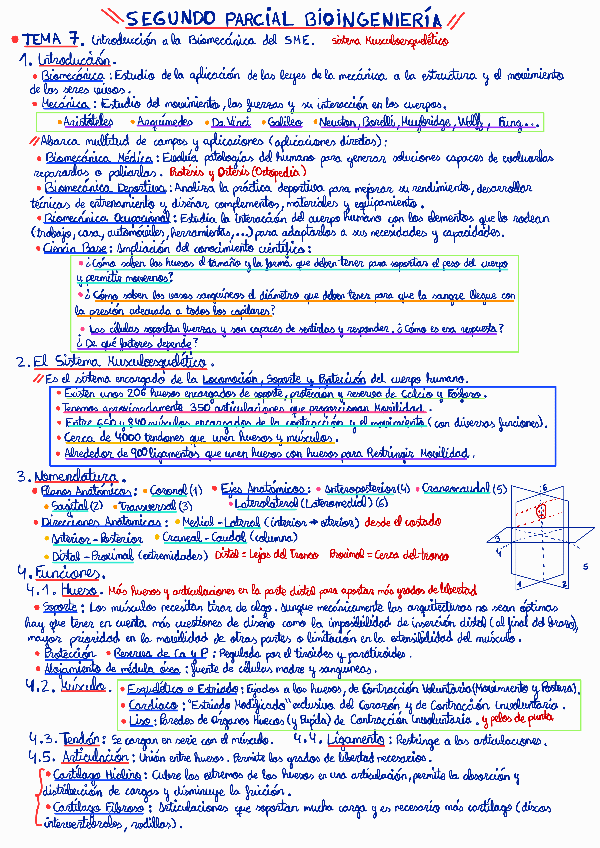 SEGUNDO PARCIAL BIOINGENIERÍA
TEMA 7. Introducción a la Biomecánica del SME. Sistema Musculoesquelético
1. Introducción.
• Biomecánica: Estudio de la aplicación de las leyes de la mecánica a la estructura y el movimiento
de los seres vivos.
• Mecánica: Estudio del movimiento, las fuerzas y su interacción en los cuerpos.
• Aristóteles • Arquímedes • Da Vinci • Galileo • Newton, Borelli, Muybridge, Wolff, Fung...
// Abarca multitud de campos y aplicaciones (aplicaciones directas):
• Biomecánica Médica: Evalúa patologías del humano para generar soluciones capaces de evaluarlas
repararlas o paliarlas. Prótesis y Órtesis (Ortopedia)
• Biomecánica Deportiva: Analiza la práctica deportiva para mejorar su rendimiento, desarrollar
técnicas de entrenamiento y diseñar complementos, materiales y equipamiento.
• Biomecánica Ocupacional: Estudia la interacción del cuerpo humano con los elementos que lo rodean
(trabajo, casa, automóviles, herramientas,...) para adaptarlos a sus necesidades y capacidades.
• Ciencia Base: Ampliación del conocimiento científico:
• ¿Cómo saben los huesos el tamaño y la forma que deben tener para soportar el peso del cuerpo
y permitir movernos?
• ¿Cómo saben los vasos sanguíneos el diámetro que deben tener para que la sangre llegue con
la presión adecuada a todos los capilares?
• Las células soportan fuerzas y son capaces de sentirlas y responder. ¿Cómo es esa respuesta?
¿De qué factores depende?
2. El Sistema Musculoesquelético.
// Es el sistema encargado de la Locomoción, Soporte y Protección del cuerpo humano.
• Existen unos 206 huesos encargados de soporte, protección y reserva de Calcio y Fósforo.
• Tenemos aproximadamente 350 articulaciones que proporcionan Movilidad.
• Entre 650 y 840 músculos encargados de la contracción y el movimiento (con diversas funciones).
• Cerca de 4000 tendones que unen huesos y músculos.
• Alrededor de 900 ligamentos que unen huesos con huesos para Restringir Movilidad.
3. Nomenclatura.
• Planos Anatómicos: • Coronal (1) • Ejes Anatómicos: • Anteroposterior (4) • Craneocaudal (5)
• Sagital (2) • Transversal (3) • Laterolateral (Lateromedial) (6)
• Direcciones Anatómicas: • Medial - Lateral (interior → exterior) desde el costado
• Anterior - Posterior • Craneal - Caudal (columna)
• Distal - Proximal (extremidades) Distal = Lejos del Tronco Proximal = Cerca del tronco
6
1
3
4
5
1
2
4. Funciones.
4.1. Hueso. - Más huesos y articulaciones en la parte distal para aportar más grados de libertad
• Soporte: Los músculos necesitan tirar de algo. Aunque mecánicamente las arquitecturas no sean óptimas
hay que tener en cuenta más cuestiones de diseño como la imposibilidad de inserción distal (al final del brazo),
mayor prioridad en la movilidad de otras partes o limitación en la extensibilidad del músculo.
• Protección • Reserva de Ca y P: Regulada por el tiroides y paratiroides.
• Alojamiento de médula ósea: fuente de células madre y sanguíneas.
4.2. Músculo. • Esquelético o Estriado: Fijados a los huesos, de Contracción Voluntaria (Movimiento y Postura).
• Cardiaco: "Estriado Modificado" exclusivo del Corazón y de Contracción Involuntaria.
• Liso: Paredes de Órganos Huecos (y Pupila) de Contracción Involuntaria. y pelos de punta
4.3. Tendón: Se cargan en serie con el músculo. 4.4. Ligamento: Restringe a las articulaciones.
4.5. Articulación: Unión entre huesos. Permite los grados de libertad necesarios.
• Cartílago Hialino: Cubre los extremos de los huesos en una articulación, permite la absorción y
distribución de cargas y disminuye la fricción.
• Cartílago Fibroso: Articulaciones que soportan mucha carga y es necesario más cartílago (discos
intervertebrales, rodillas).